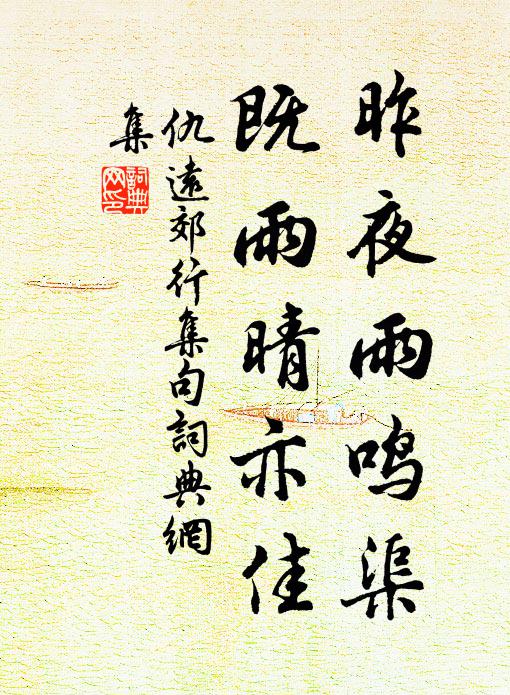 昨夜雨鸣渠
既雨晴亦佳
仇遠郊行集句詞典網
集
詞典网印